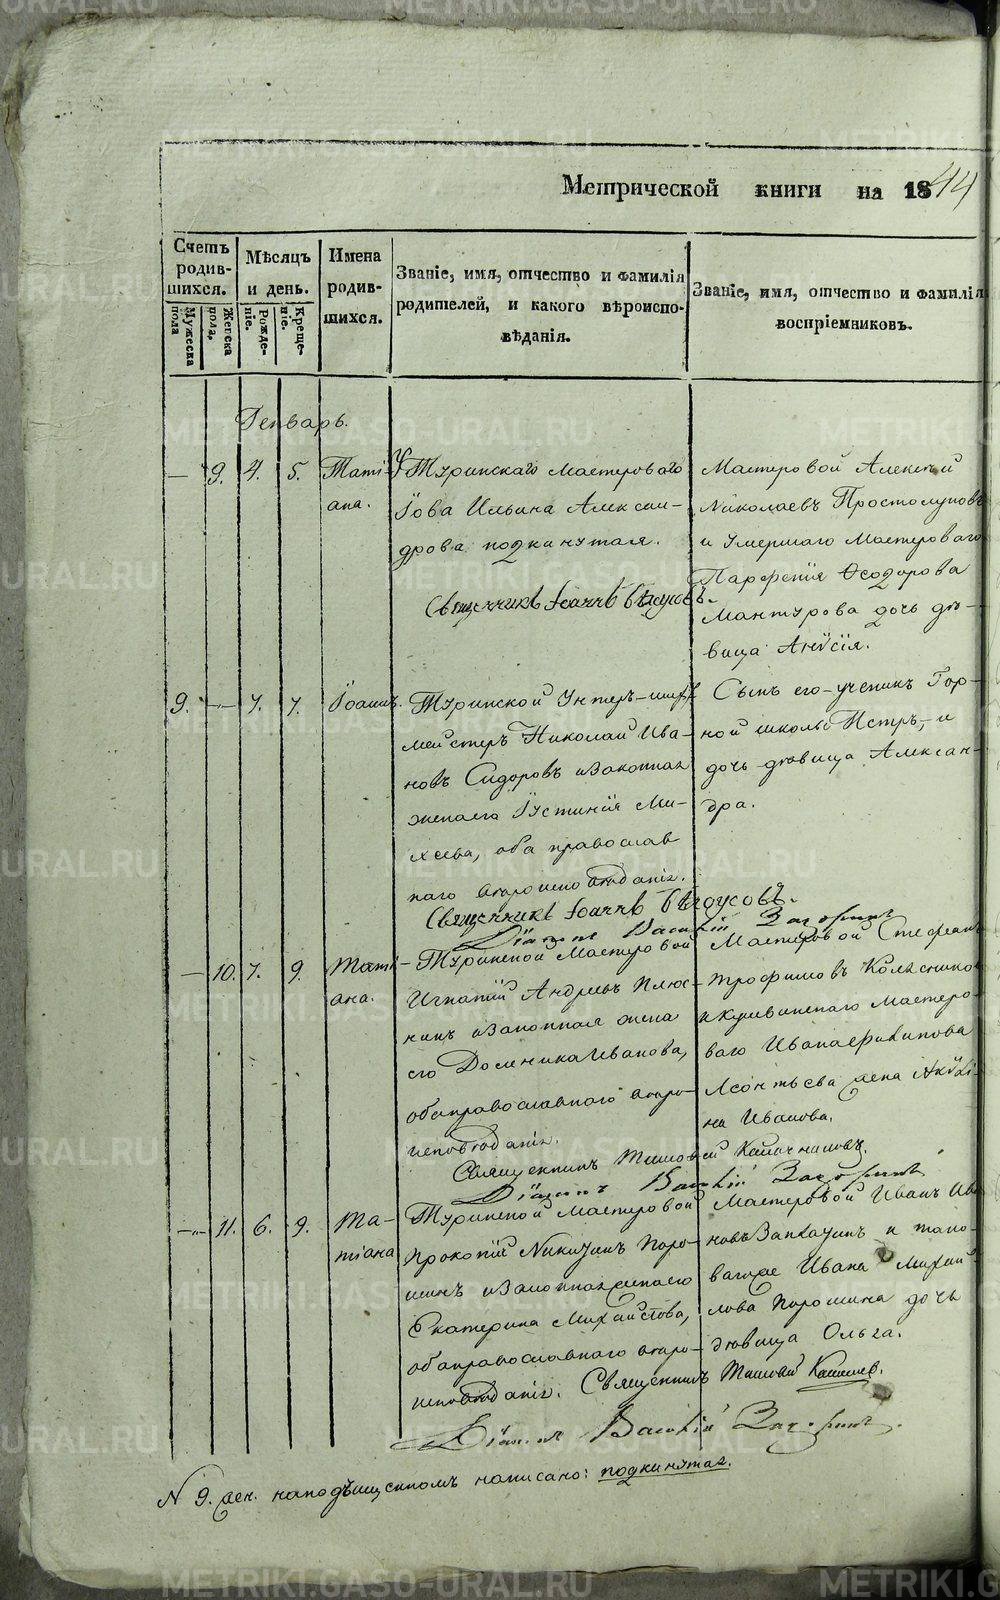 Метрической книги на 1844
Счетъ родив-шихся.
Мужеска пола
Женска пола.
Мѣсяцъ и день.
Рожде-ніе.
Креще-ніе.
Имена родив-шихся.
Званіе, имя, отчество и фамилія
родителей, и какого вѣроиспо-
вѣданія.
Званіе, имя, отчество и фамилія
воспріемниковъ.
Генварь.
— 9. 4. 5. Таті-
ана.
У Туринскаго мастероваго
Іова Ильина Алексан-
дрова подкинутая.
Священникъ Іоаннъ Бѣлоусовъ.
Мастеровой Алексѣй
Николаевъ Простолуповъ
и умершаго мастероваго
Парфенія Ѳеодорова
Мантурова дочь дѣ-
вица Анѵсія.
9. — 7. 7. Іоаннъ.
Туринской Унтеръ-шихт
мейстеръ Николай Ива-
новъ Сидоровъ и законная
жена его Іустинія Ми-
хеева, оба православ
наго вѣроисповѣданія.
Священникъ Іоаннъ Бѣлоусовъ.
Діаконъ Василій
Сынъ его-ученикъ Гор-
ной школы Петръ, и
дочь-дѣвица Алексан-
дра.
— 10. 7. 9. Таті-
ана.
Туринской мастеровой
Игнатій Андреевъ Плюс-
нинъ и законная жена
его Домника Иванова,
оба православнаго вѣро-
исповѣданія.
Мастеровой Стефанъ
Трофимовъ Колесников
и Кушвинскаго мастеро-
ваго Ивана Филипова
Леонтьева жена Акѵли-
на Иванова.
Священникъ
Діаконъ Василій
— 11. 6. 9. Та-
тіана
Туринской мастеровой
Прокопій Никитинъ Поро-
шинъ и законная жена его
Екатерина Михайлова,
оба православнаго вѣро-
исповѣданія.
Мастеровой Иванъ Ива
новъ и тако-
вагоже Ивана Михай
лова Порошина дочь
дѣвица Ольга.
Священникъ
Діаконъ Василій
N 9. жен. наподъищенномъ написано: подкинутая.